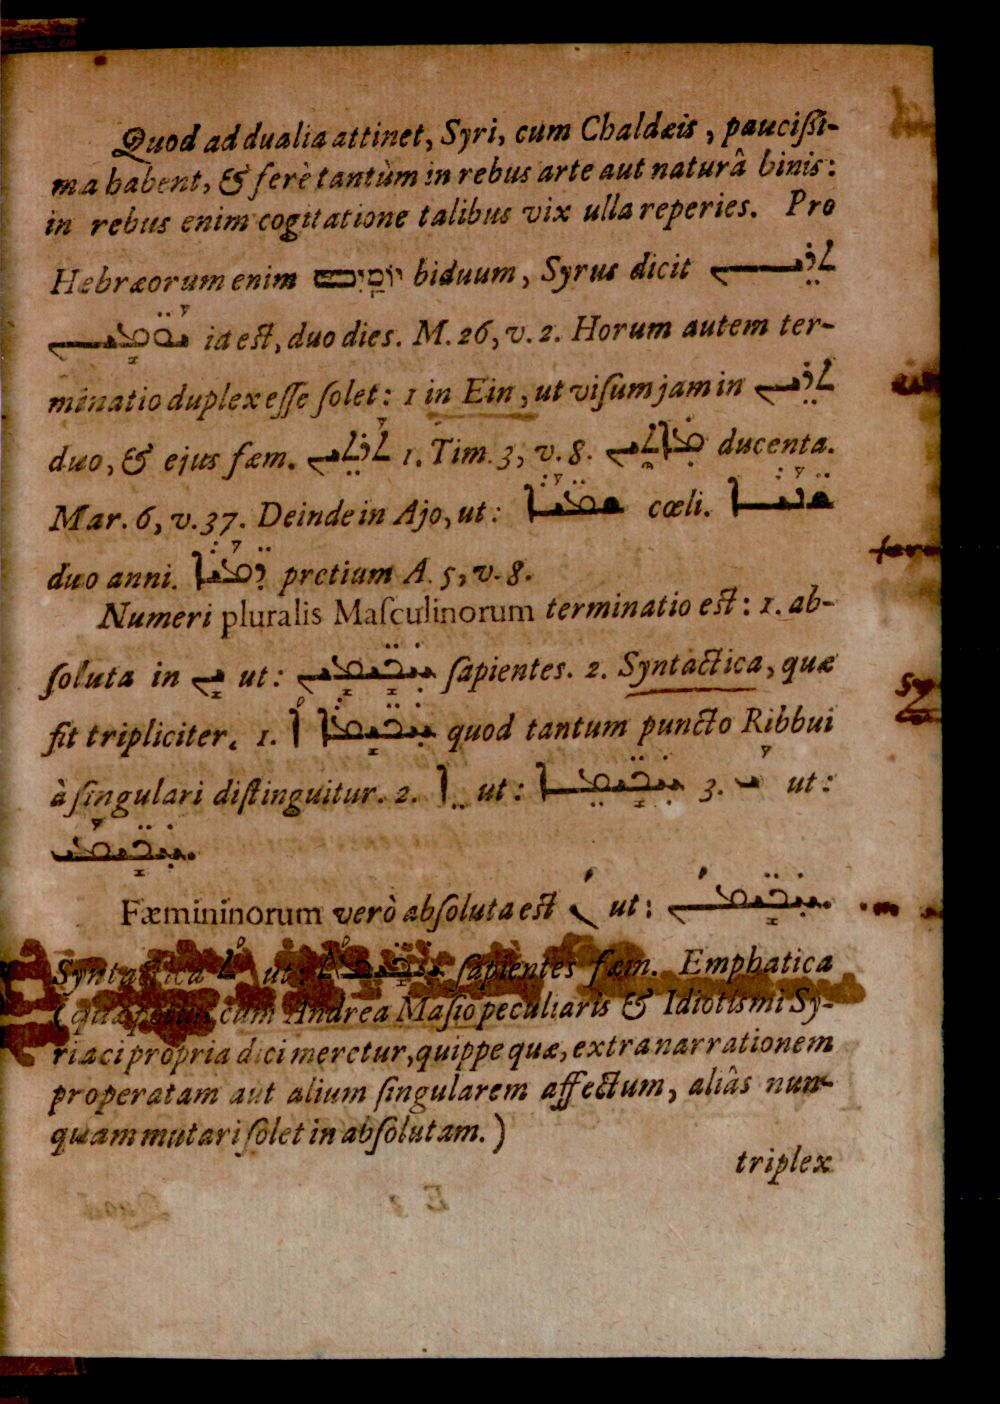 Quod ad dualia attinet, Syri, cum Chaldæis, pauciſſi-
ma habent, & ferè tantùm in rebus arte aut naturâ binis:
in rebus enim cogitatione talibus vix ulla reperies. Pro
Hebræorum enim יוֹמַיִם biduum, Syrus dicit ܬܪܝܢ
ܝܘܡܝܢ id eſt, duo dies. M. 26, v. 2. Horum autem ter-
minatio duplex eſſe ſolet: 1 in Ein, ut viſum jam in ܬܪܝܢ
duo, & ejus fæm. ܬܪܬܝܢ 1. Tim. 3, v. 8. ܡܐܬܝܢ ducenta.
Mar. 6, v. 37. Deinde in Ajo, ut: ܫܡܝܐ cœli.
duo anni. ܕܡܝܐ pretium A. 5, v. 8.
Numeri pluralis Maſculinorum terminatio eſt: 1. ab-
ſoluta in ܝܢ ut: ܚܟܝܡܝܢ ſapientes. 2. Syntactica, quæ
fit tripliciter. 1. ܐ ܚܟܝܡܐ quod tantum puncto Ribbui
à ſingulari diſtinguitur. 2. ܐ ut: 3. ܝ ut:
ܚܟܝܡܝ.
Fæmininorum verò abſoluta eſt ܢ ut: ܚܟܝܡܢ.
Syntactica ܬ ut: ſapientes fæm. Emphatica
(quæ potius cum Andrea Maſio peculiaris & Idiotismi Sy-
riaci propria dici meretur, quippe quæ, extra narrationem
properatam aut alium ſingularem affectum, aliâs nun-
quam mutari ſolet in abſolutam.)
triplex